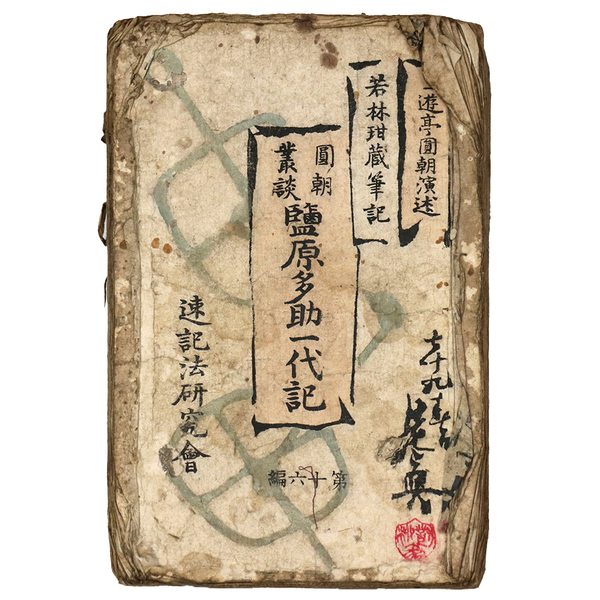 遊亭圓朝演述
若林玵蔵筆記
圓朝
叢談
鹽原多助一代記
速記法研究會
第十六編